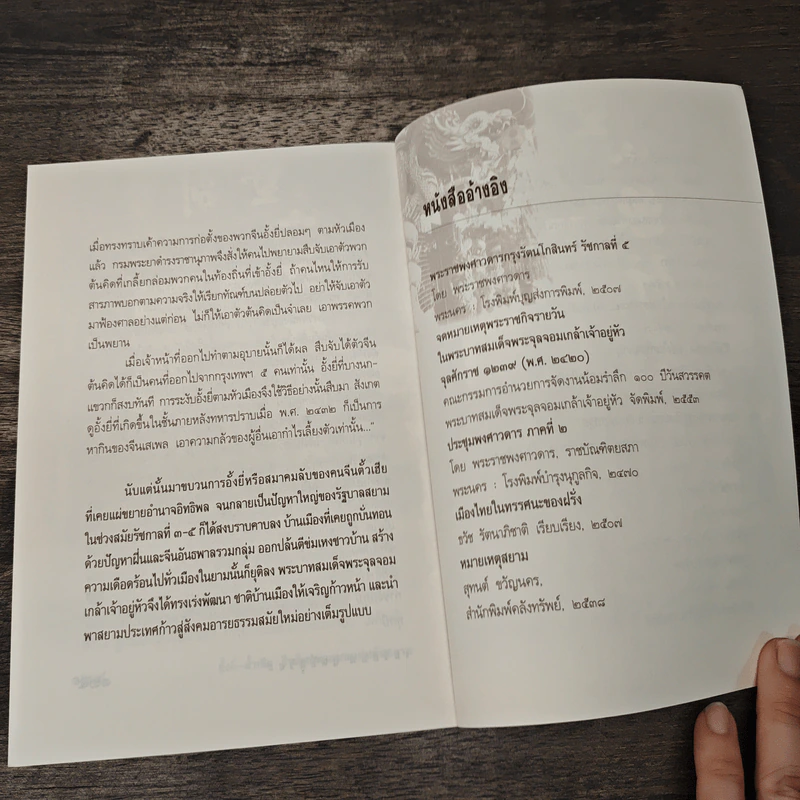 เมื่อทรงทราบเค้าความการก่อตั้งของพวกจีนอั้งยี่ปลอมๆ ตามหัวเมือง
แล้ว กรมพระยาดำรงราชานุภาพจึงสั่งให้คนไปพยายามสืบจับเอาตัวพวก
ต้นคิดที่เกลี้ยกล่อมพวกคนในท้องถิ่นที่เข้าอั้งยี่ ถ้าคนไหนให้การรับ
สารภาพบอกตามความจริงให้เรียกทัณฑ์บนปล่อยตัวไป อย่าให้จับเอาตัว
มาฟ้องศาลอย่างแต่ก่อน ไม่ก็ให้เอาตัวต้นคิดเป็นจำเลย เอาพรรคพวก
เป็นพยาน
เมื่อเจ้าหน้าที่ออกไปทำตามอุบายนั้นก็ได้ผล สืบจับได้ตัวจีน
ต้นคิดได้ก็เป็นคนที่ออกไปจากกรุงเทพฯ ๕ คนเท่านั้น อั้งยี่ที่บางนก-
แขวกก็สงบทันที การระงับอั้งยี่ตามหัวเมืองจึงใช้วิธีอย่างนั้นสืบมา สังเกต
ดูอั้งยี่ที่เกิดขึ้นในชั้นภายหลังทหารปราบเมื่อ พ.ศ. ๒๔๓๒ ก็เป็นการ
หากินของจีนเสเพล เอาความกลัวของผู้อื่นเอากำไรเลี้ยงตัวเท่านั้น..."
นับแต่นั้นมาขบวนการอั้งยี่หรือสมาคมลับของคนจีนตั้วเฮีย
ที่เคยแผ่ขยายอำนาจอิทธิพล จนกลายเป็นปัญหาใหญ่ของรัฐบาลสยาม
ในช่วงสมัยรัชกาลที่ ๓-๕ ก็ได้สงบราบคาบลง บ้านเมืองที่เคยถูกบั่นทอน
ด้วยปัญหาฝิ่นและจีนอันธพาลรวมกลุ่ม ออกปล้นตีข่มเหงชาวบ้าน สร้าง
ความเดือดร้อนไปทั่วเมืองในยามนั้นก็ยุติลง พระบาทสมเด็จพระจุลจอม
เกล้าเจ้าอยู่หัวจึงได้ทรงเร่งพัฒนา ชาติบ้านเมืองให้เจริญก้าวหน้า และนำ
พาสยามประเทศก้าวสู่สังคมอารยธรรมสมัยใหม่อย่างเต็มรูปแบบ
หนังสืออ้างอิง
พระราชพงศาวดารกรุงรัตนโกสินทร์ รัชกาลที่ ๕
โดย พระราชพงศาวดาร
พระนคร : โรงพิมพ์บุญส่งการพิมพ์, ๒๕๐๗
จดหมายเหตุพระราชกิจรายวัน
ในพระบาทสมเด็จพระจุลจอมเกล้าเจ้าอยู่หัว
จุลศักราช ๑๒๓๙ (พ.ศ. ๒๔๒๐)
คณะกรรมการอำนวยการจัดงานน้อมรำลึก ๑๐๐ ปีวันสวรรคต
พระบาทสมเด็จพระจุลจอมเกล้าเจ้าอยู่หัว จัดพิมพ์, ๒๕๕๓
ประชุมพงศาวดาร ภาคที่ ๒
โดย พระราชพงศาวดาร, ราชบัณฑิตยสภา
พระนคร : โรงพิมพ์บำรุงนุกูลกิจ, ๒๔๗๐
เมืองไทยในทรรศนะของฝรั่ง
ธวัช รัตนาภิชาติ เรียบเรียง, ๒๕๐๗
หมายเหตุสยาม
สุทนต์ ขวัญนคร,
สำนักพิมพ์คลังทรัพย์, ๒๕๓๘